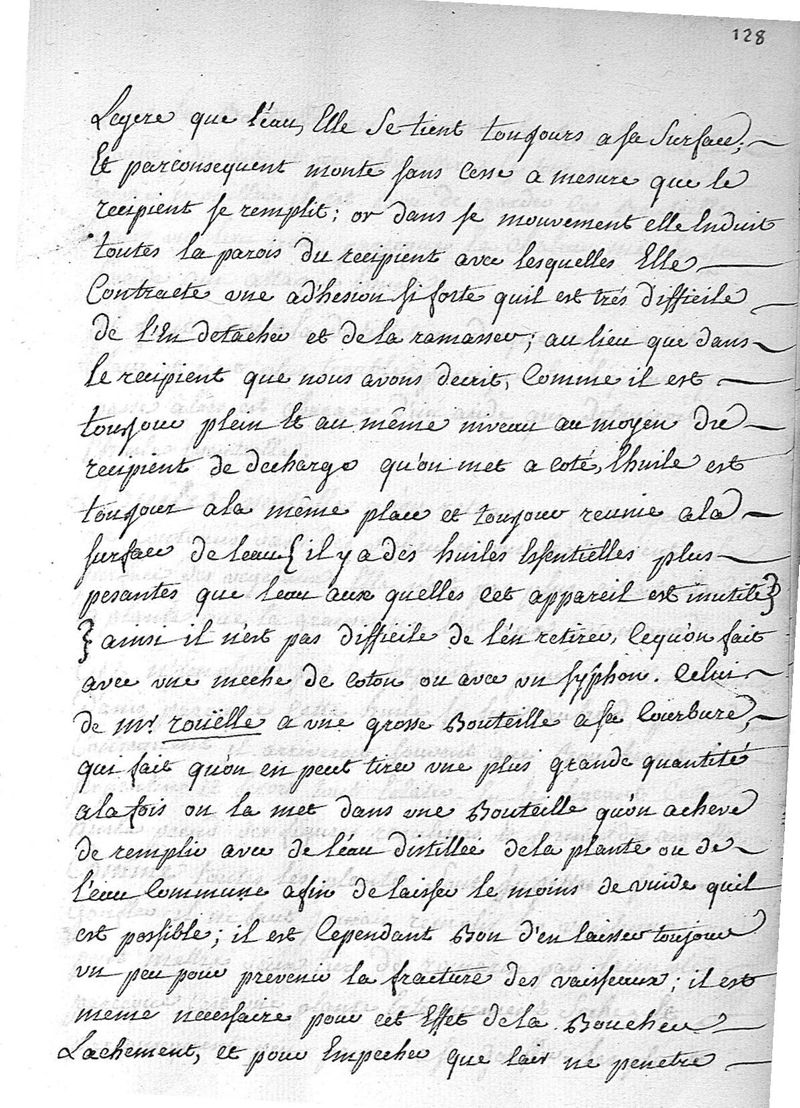 128
Legere que l'eau, Elle se tient toujours a sa Surface;
Et parconsequent monte sans Cesse a mesure que le
recipient se remplit; or dans se mouvement elle Enduit
toutes la parois du recipient avec lesquelles Elle
Contracte une ad'hesion si forte quil est trés difficile
de l'En detacher et dela ramasser; au lieu que dans
le recipient que nous avons decrit, Comme il est
toujour plein Et au même niveau au moyen du
recipient de decharge qu'on met a coté, l'huile est
toujour ala même place et toujour reunie ala
surface de leau { il y a des huiles Essentielles plus
pesantes que leau aux quelles Cet appareil est inutile }
} ainsi il n'est pas difficile de l'en retirer, Cequ'on fait
avec une meche de Coton ou avec un syphon. Celui
de Mr. rouëlle a une grosse Bouteille a sa Courbure,
qui fait qu'on en peut tirer une plus grande quantité
ala fois on la met dans une Bouteille qu'on acheve
de remplir avec de leau distillée dela plante ou de
l'eau Commune afin de laisser le moins de vuide quil
est possible; il est Cependant Bon d'en laisser toujour
un peu pour prevenir la fracture des vaisseaux; il est
meme necessaire pour cet Effet de la Boucher
Lachement, et pour Empecher que lair ne penetre